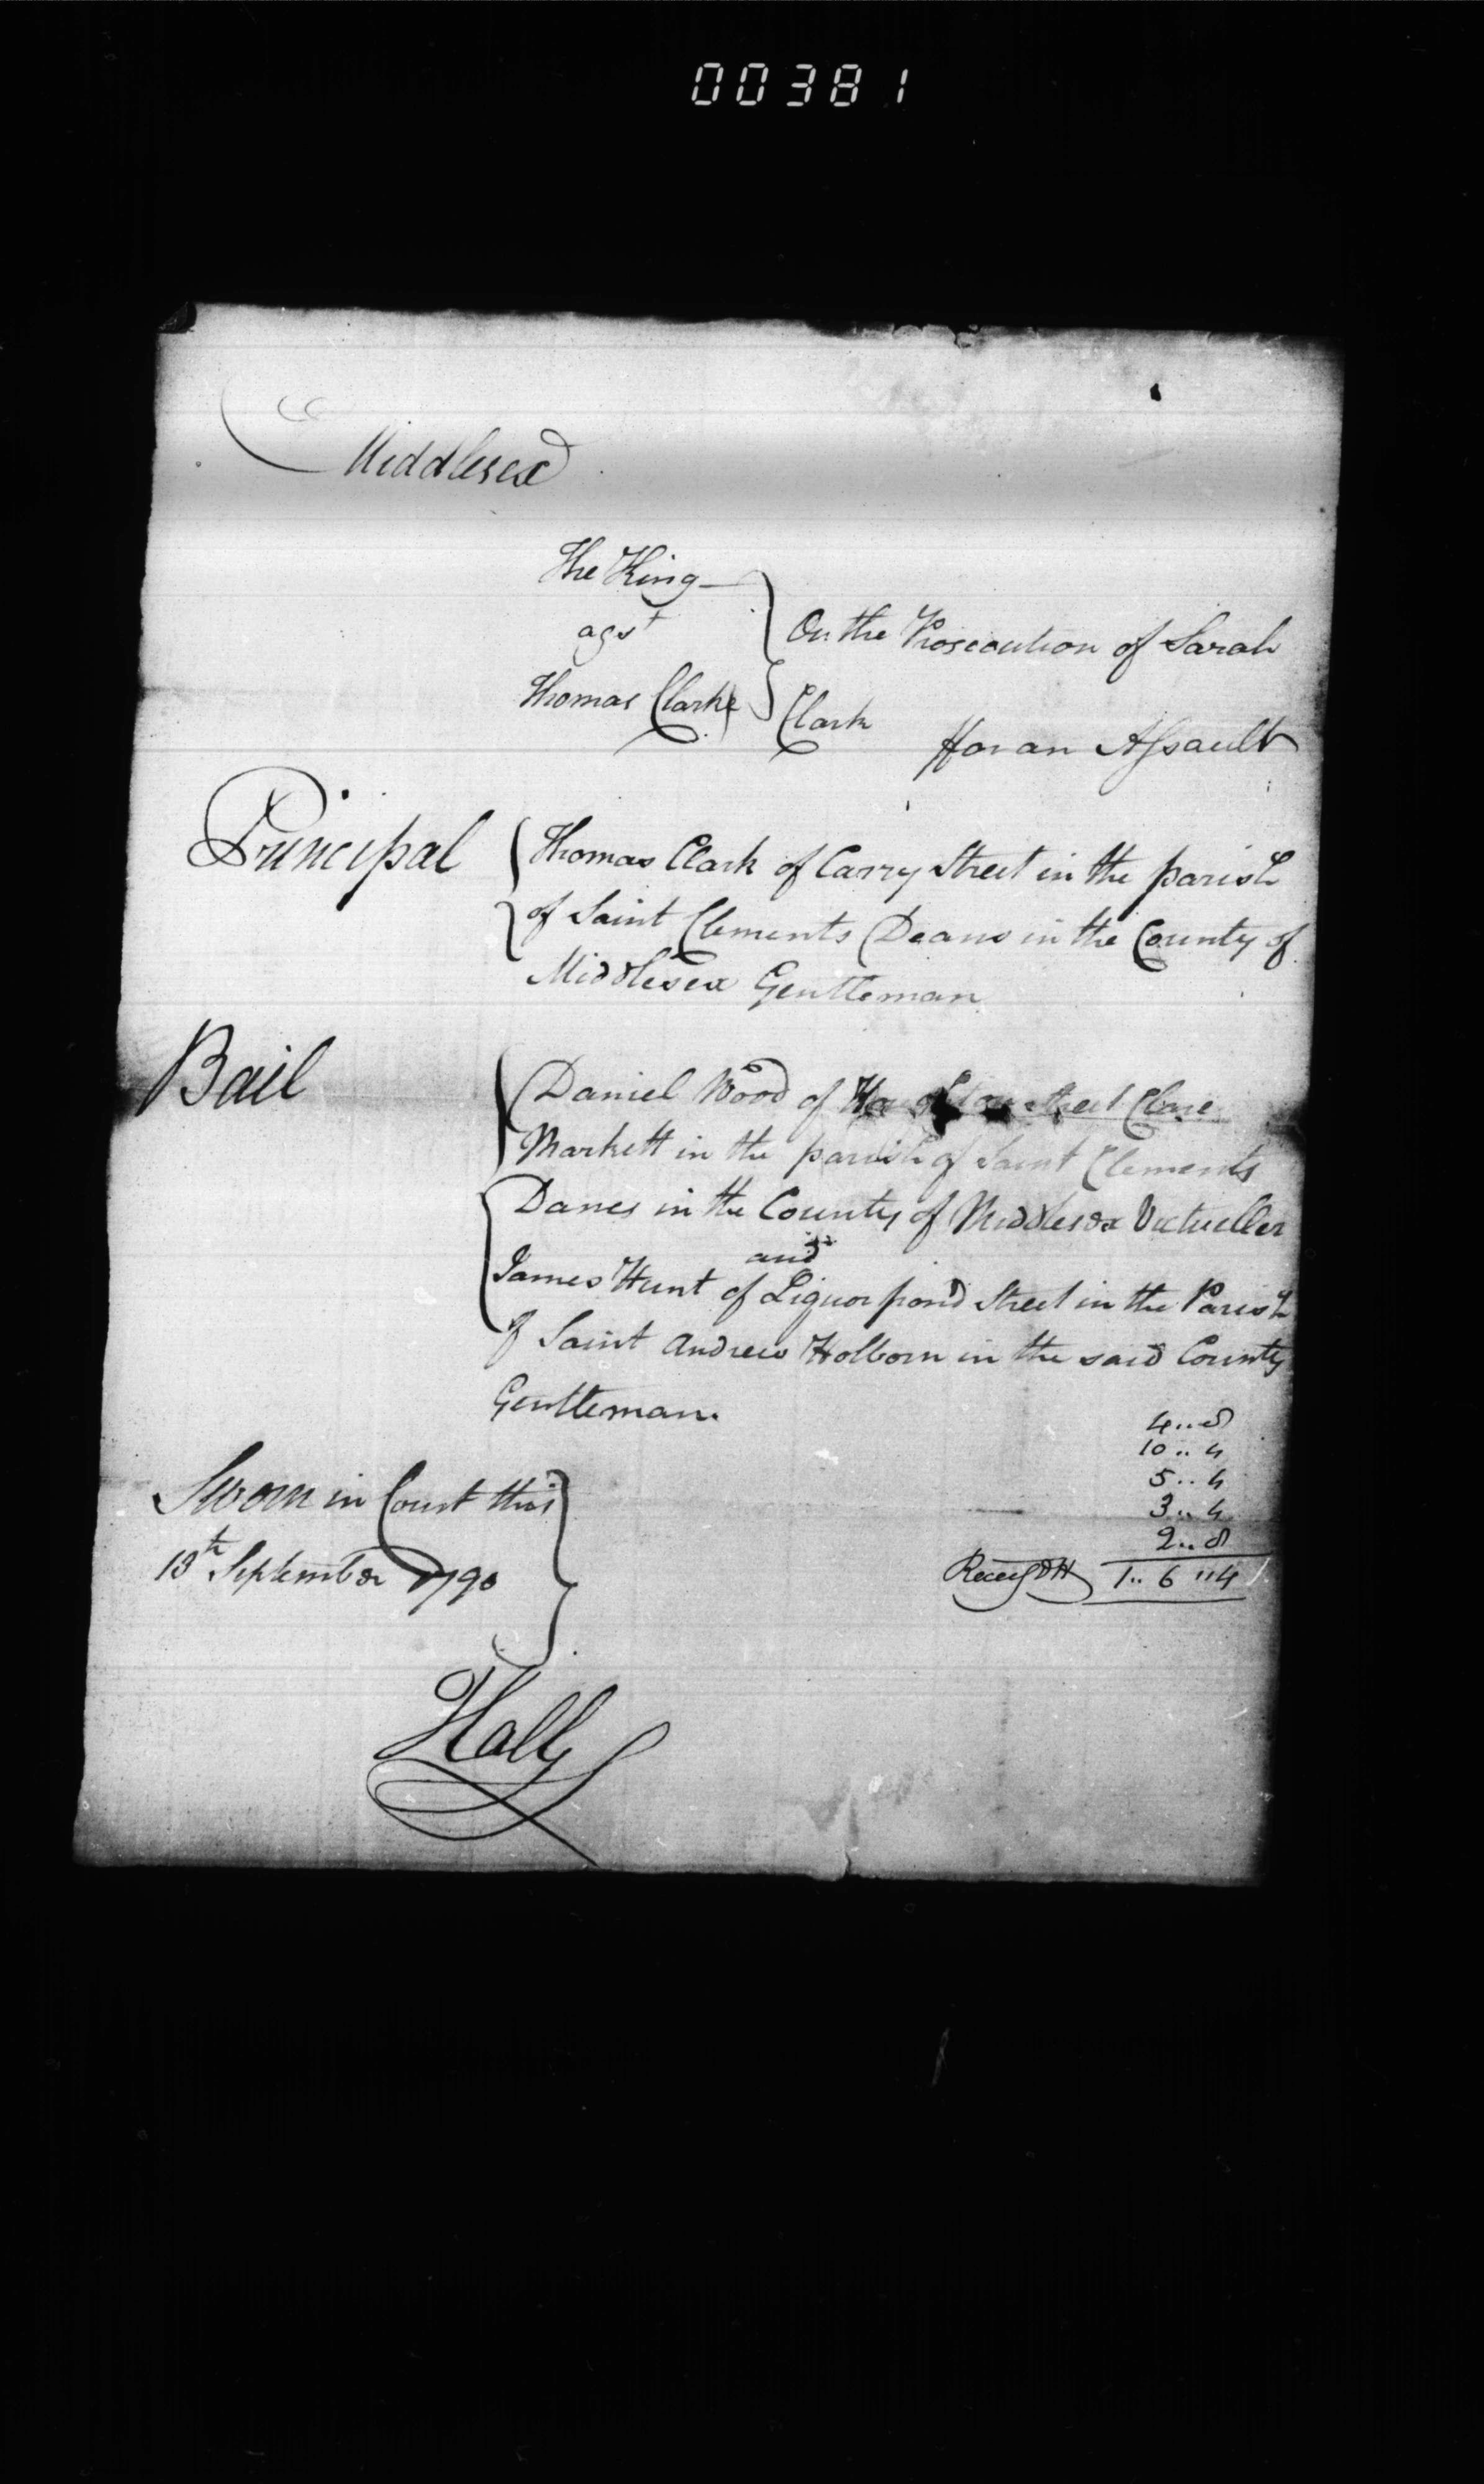 00381
Middlesex
The King
agst
Thomas Clarke
On the Prosecution of Sarah
Clark
ffor an Assault
Principal
Thomas Clark of Carry Street in the parish
of Saint Clements Deans in the County of
Middlesex Gentleman
Bail
Daniel Wood of Houghton Street Clare
Markett in the parish of Saint Clements
Danes in the County of Middlesex Victueller
and
James Hunt of Liquorpond Street in the Parish
of Saint Andrew Holborn in the said County
Gentleman.
4..8
10..4
5..4
3..4
2..8
1..6..4
Sworn in Court this
13th September 1790
Hall